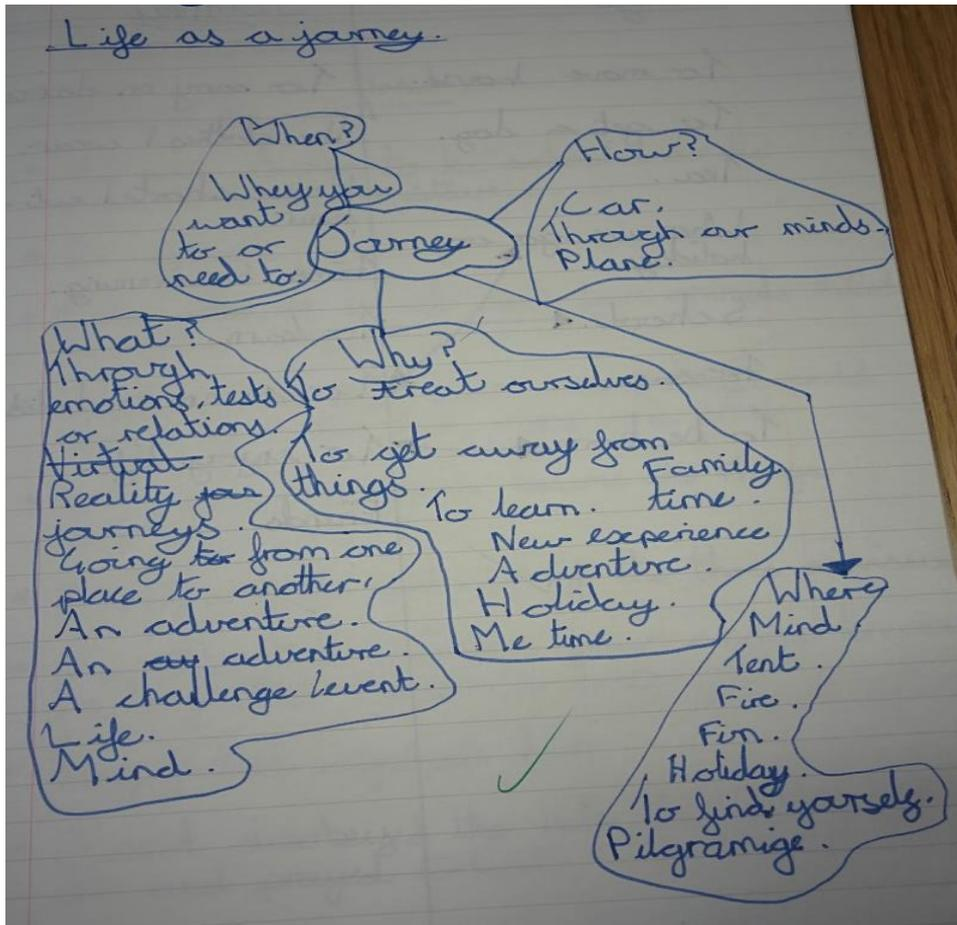 Life as a jarney.
When?
Whey you
want
to or
need to.
Jarney
How?
Car.
Through our minds.
Plane.
What?
Through
emotions, tests
or relations.
Virtual
Reality jou
journeys.
Going to from one
place to another,
An adventure.
An ay adventure.
A challenge/event.
Life.
Mind.
Why?
To treat ourselves.
To get away from
things.
Family
time.
To learn.
New experience
Adventure.
Holiday.
Me time.
Where
Mind
Tent.
Fire.
Fun.
Holiday.
To find yourself.
Pilgramige.